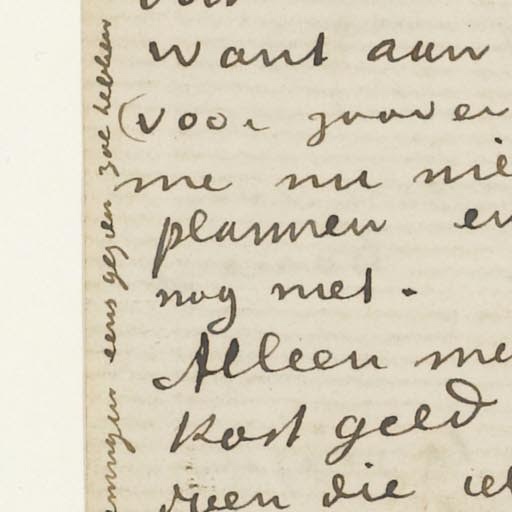 want aan
(voor zoover
me nu nie
plannen en
nog niet.
Alleen me
kost geld
zien die
eens gezien zoe hebben